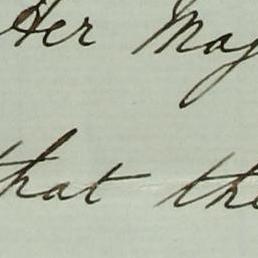 Her Maj
that the